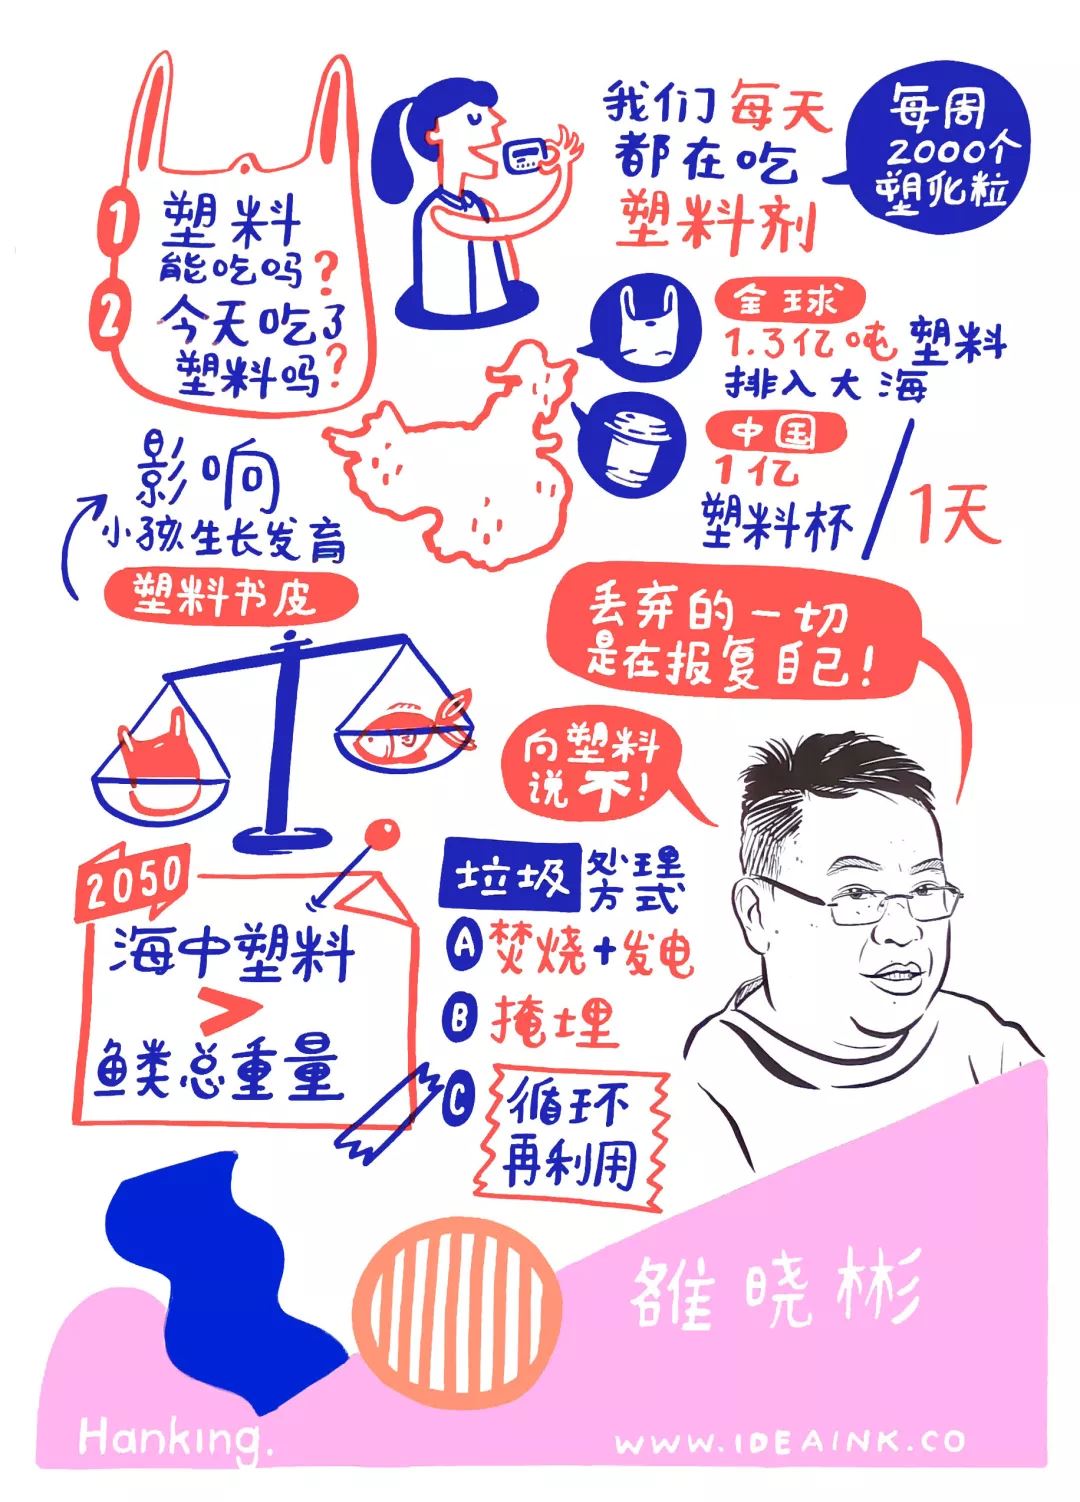 1 塑料
能吃吗?
2 今天吃了
塑料吗?
我们每天
都在吃
塑料剂
每周
2000个
塑化粒
全球
1.3亿吨塑料
排入大海
中国
1亿
塑料杯/1天
影响
小孩生长发育
塑料书皮
丢弃的一切
是在报复自己!
向塑料
说不!
2050
海中塑料
>
鱼类总重量
垃圾处理
方式
A 焚烧+发电
B 掩埋
C 循环
再利用
雒晓彬
Hanking.
WWW.IDEAINK.CO